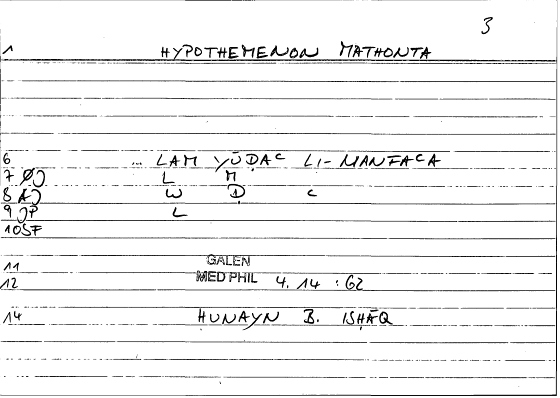 3
1 HYPOTHEMENON MATHONTA
6 ... LAM YŪḌAC LI-MANFACA
7 ØJ L M
8 AJ W Ḍ C
9 JP L
10 SF
11 GALEN
12 MED PHIL 4. 14 : 62
14 ḤUNAYN B. ISḤĀQ